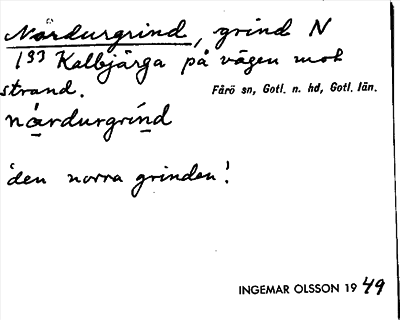 Nordurgrind, grind N
1³³ Kalbjärga på vägen mot
strand. Fårö sn, Gotl. n. hd, Gotl. län.
nárdurgrínd
'den norra grinden'.
INGEMAR OLSSON 1949